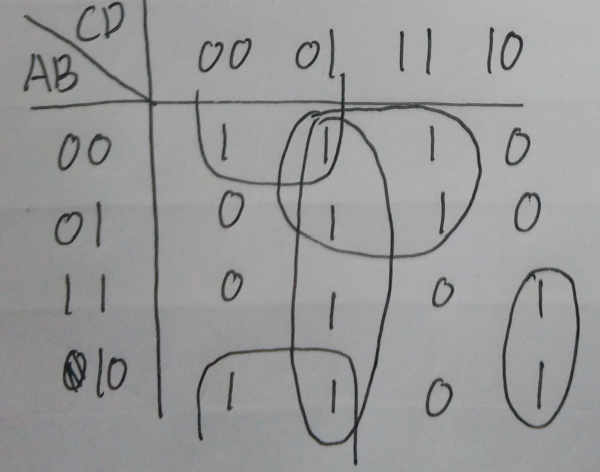 CD
AB 00 01 11 10
00 1 1 1 0
01 0 1 1 0
11 0 1 0 1
10 1 1 0 1